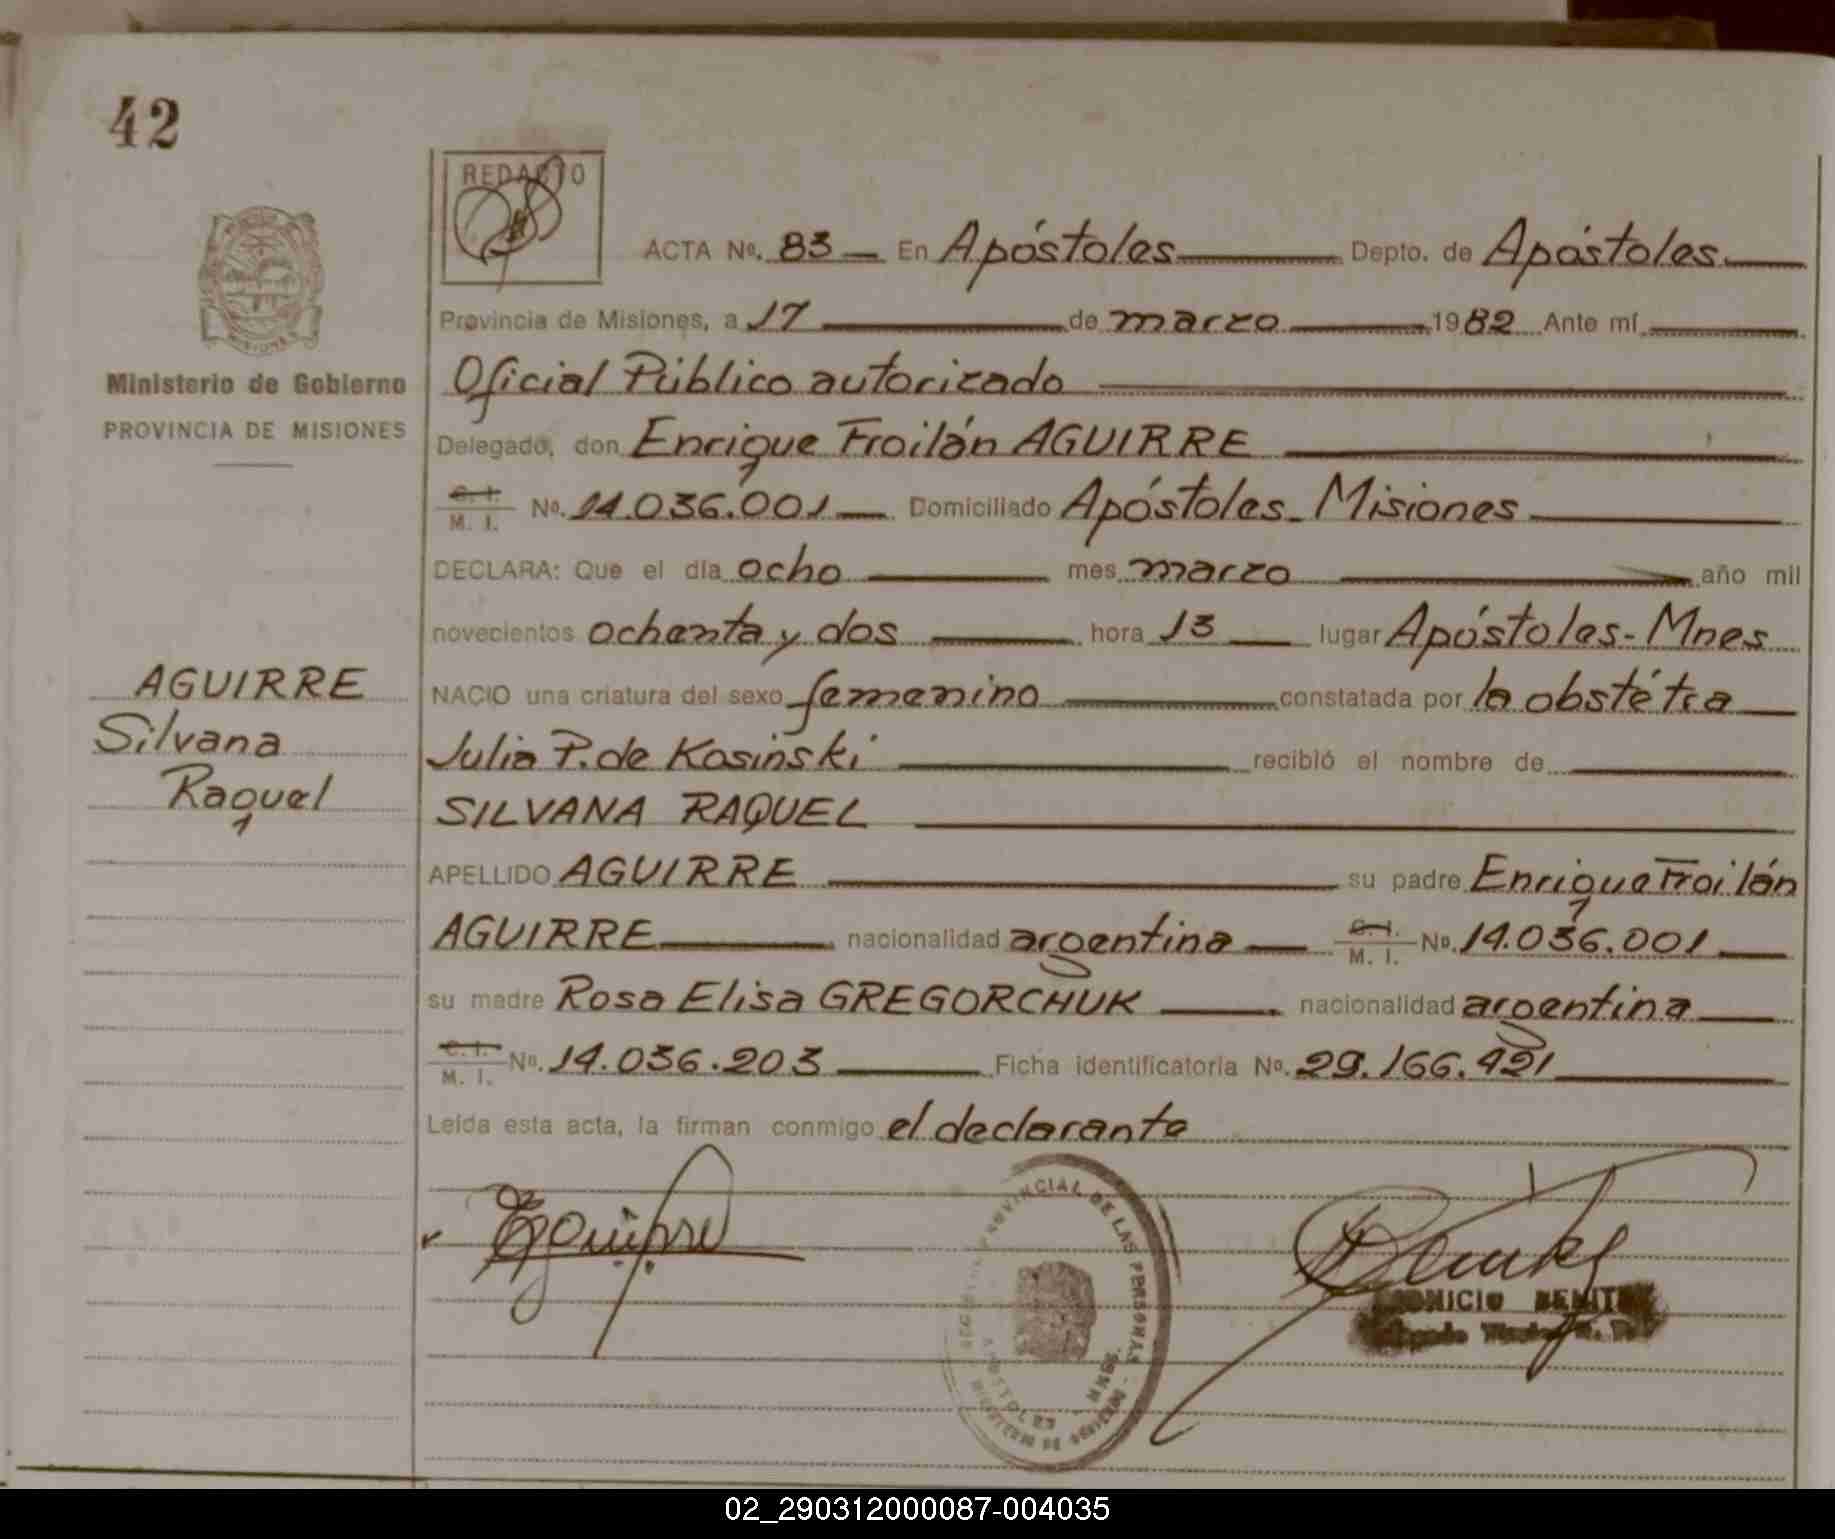 42
REDACTO
ACTA Nº. 83 — En Apóstoles Depto. de Apóstoles
MISIONES
Provincia de Misiones, a 17 de marzo 1982 Ante mí
Ministerio de Gobierno
PROVINCIA DE MISIONES
Oficial Público autorizado
Delegado, don Enrique Froilán AGUIRRE
C. I.
M. I. Nº. 14.036.001 — Domiciliado Apóstoles - Misiones
DECLARA: Que el día ocho mes marzo año mil
novecientos ochenta y dos hora 13 lugar Apóstoles - Mnes
AGUIRRE
Silvana
Raquel
NACIO una criatura del sexo femenino constatada por la obstétra
Julia P. de Kosinski recibió el nombre de
SILVANA RAQUEL
APELLIDO AGUIRRE su padre Enrique Froilán
AGUIRRE nacionalidad argentina C. I. M. I. Nº. 14.036.001
su madre Rosa Elisa GREGORCHUK nacionalidad argentina
C. I.
M. I. Nº. 14.036.203 Ficha identificatoria Nº. 29.166.421
Leída esta acta, la firman conmigo el declarante
PROVINCIAL DE LAS PERSONAS
APOSTOLES
02_290312000087-004035